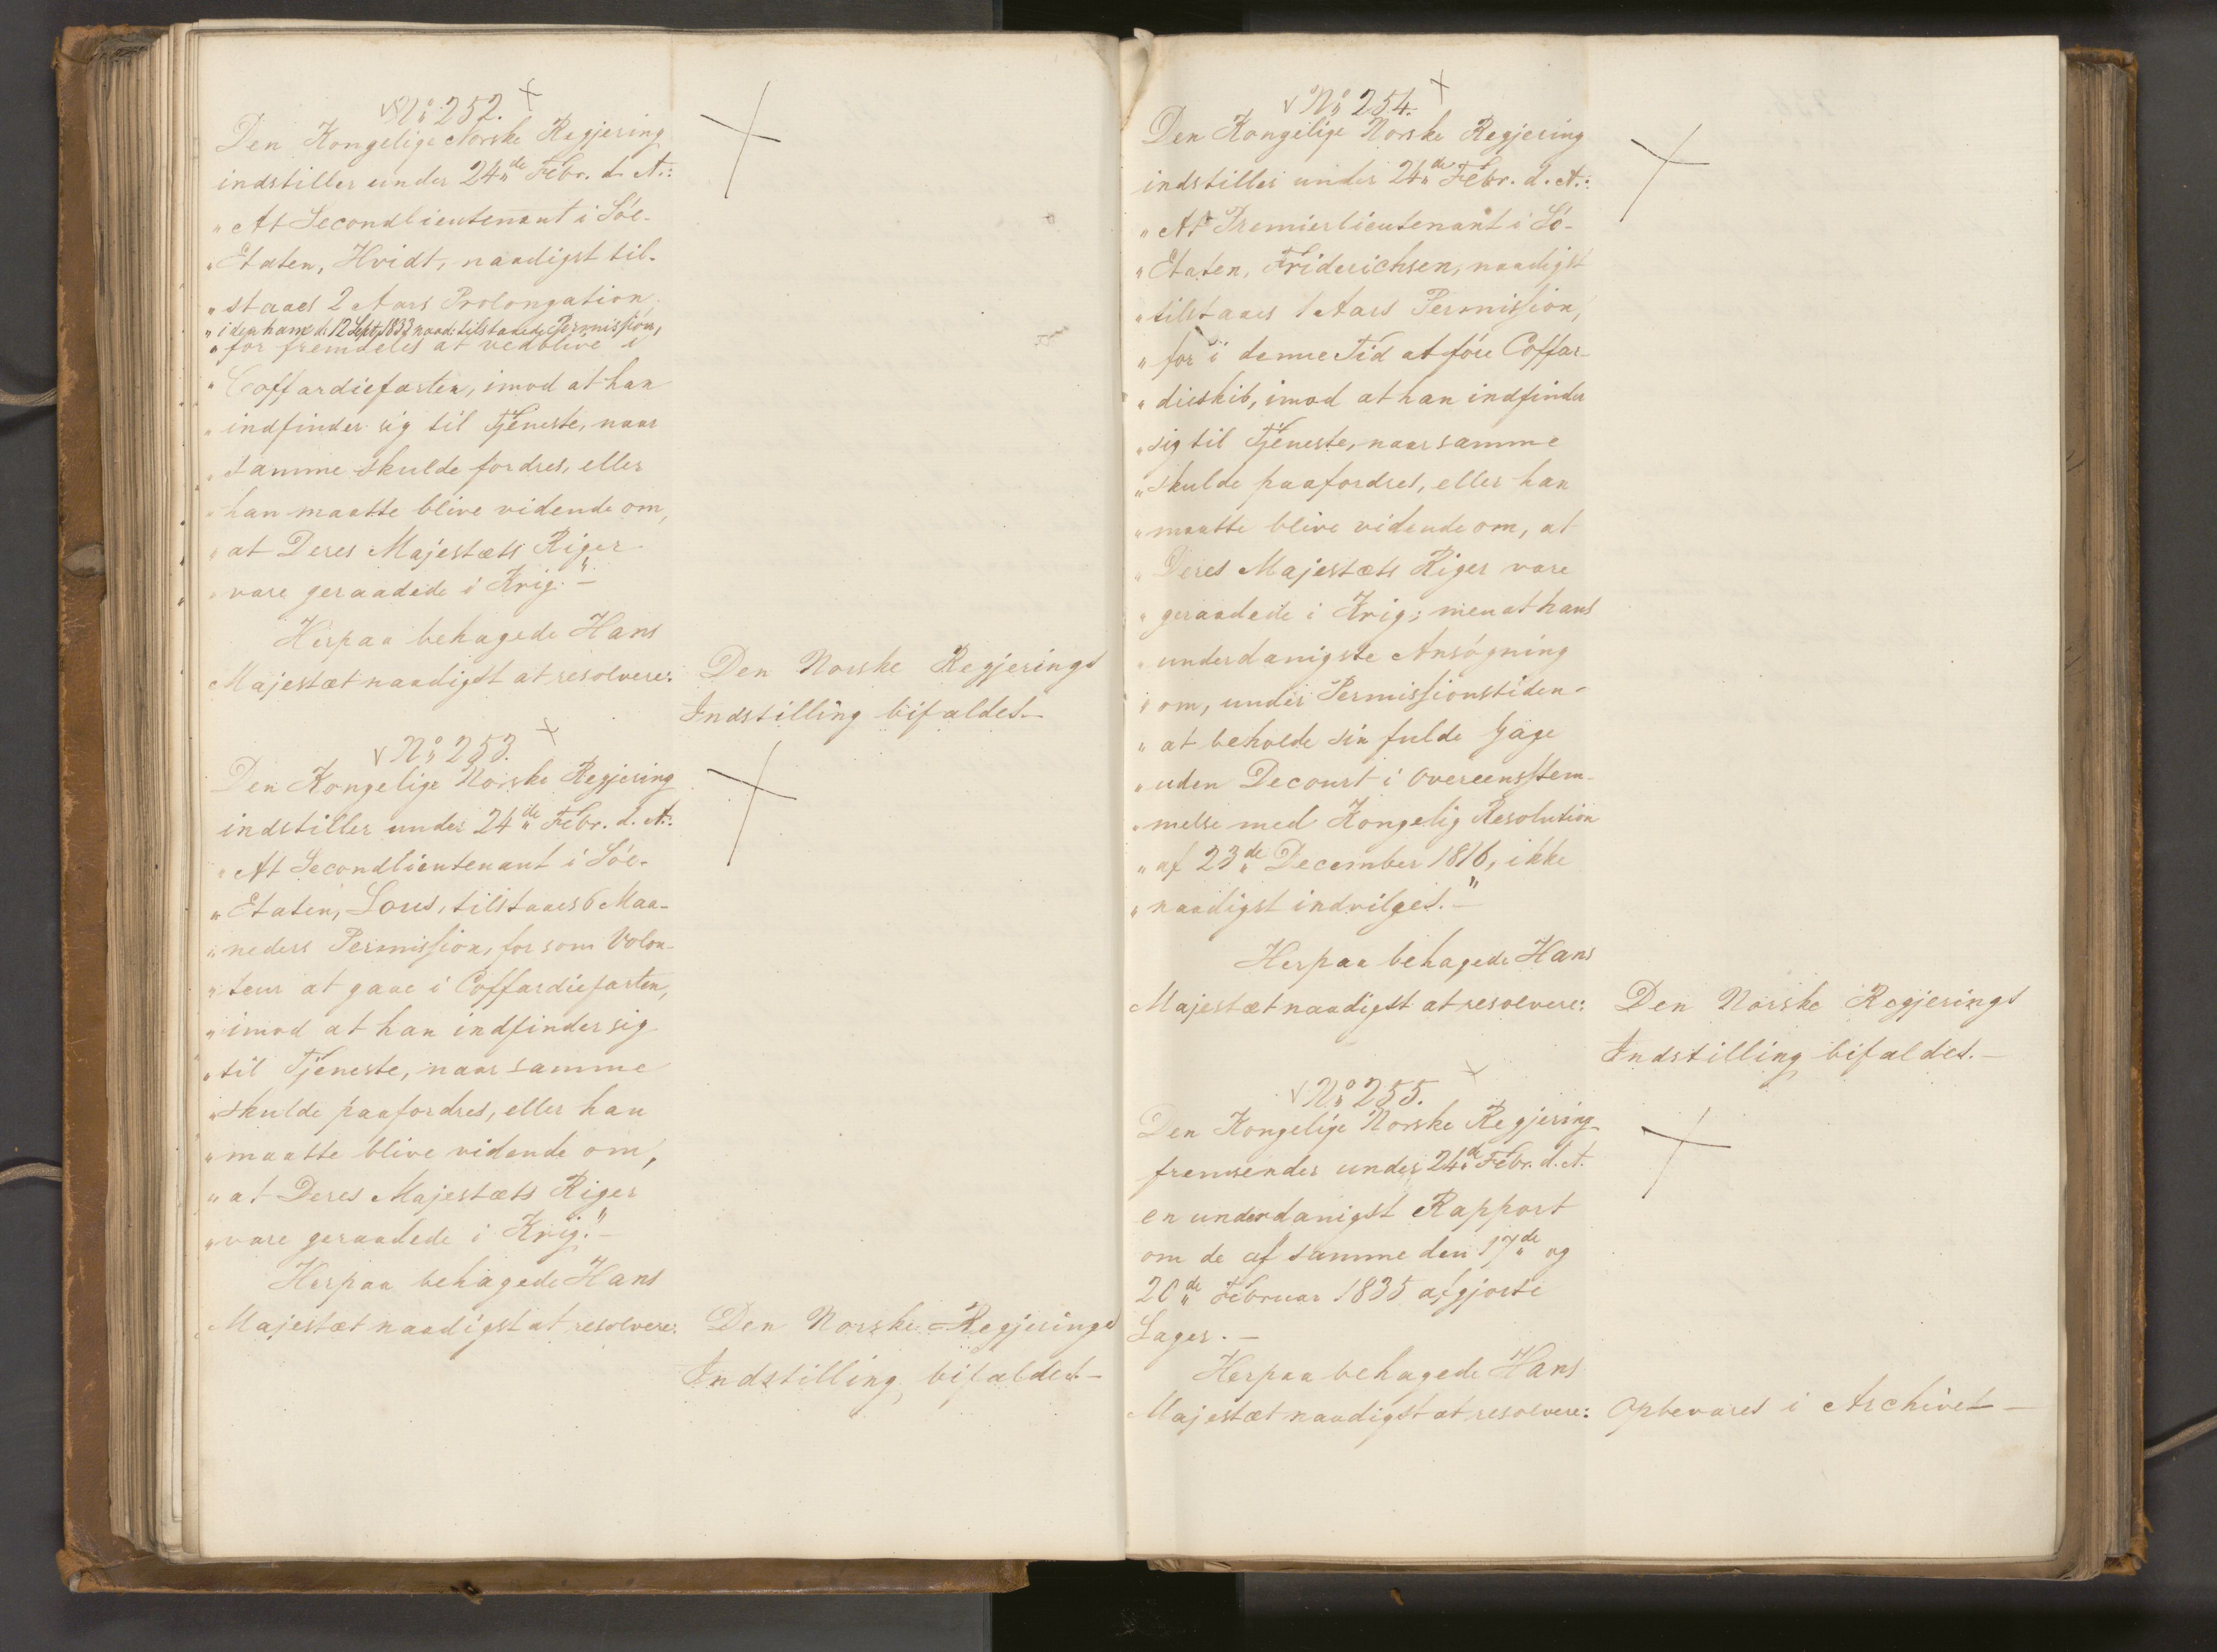 No 252.
Den Kongelige Norske Regjering
indstiller under 24de Febr. d. A.:
"At Secondlieutenant i Söe-
"Etaten, Hvidt, naadigst til-
"staaes 2 Aars Prolongation
"i den ham d. 12 Sept. 1833 naad. tilstaaede Permission,
"for fremdeles at vedblive i
"Coffardiefarten, imod at han
"indfinder sig til Tjeneste, naar
"samme skulde fordres, eller
"han maatte blive vidende om,
"at Deres Majestæts Riger
"vare geraadede i Krig." –
Herpaa behagede Hans
Majestæt naadigst at resolvere: Den Norske Regjerings
Indstilling bifaldes. –
No 253.
Den Kongelige Norske Regjering
indstiller under 24de Febr. d. A.:
"At Secondlieutenant i Söe-
"Etaten, Lous, tilstaaes 6 Maa-
"neders Permission, for som Volon-
"teur at gaae i Coffardiefarten,
"imod at han indfinder sig
"til Tjeneste, naar samme
"skulde paafordres, eller han
"maatte blive vidende om,
"at Deres Majestæts Riger
"vare geraadede i Krig." –
Herpaa behagede Hans
Majestæt naadigst at resolvere: Den Norske Regjerings
Indstilling bifaldes –
No 254.
Den Kongelige Norske Regjering
indstiller under 24de Febr. d. A.:
"At Premierlieutenant i Sö-
"Etaten, Friderichsen, naadigst
"tilstaaes 1 Aars Permission,
"for i denne Tid at före Coffar-
"dieskib, imod at han indfinder
"sig til Tjeneste, naar samme
"skulde paafordres, eller han
"maatte blive vidende om, at
"Deres Majestæts Riger vare
"geraadede i Krig; men at hans
"underdanigste Ansögning
"om, under Permissionstiden
"at beholde sin fulde Gage
"uden Decourt i Overeensstem-
"melse med Kongelig Resolution
"af 23de December 1816, ikke
"naadigst indvilges." –
Herpaa behagede Hans
Majestæt naadigst at resolvere: Den Norske Regjerings
Indstilling bifaldes. –
No 255.
Den Kongelige Norske Regjering
fremsender under 24de Febr. d. A.
en underdanigst Rapport
om de af samme den 17de og
20de Februar 1835 afgjorte
Sager. –
Herpaa behagede Hans
Majestæt naadigst at resolvere: Opbevares i Archivet –